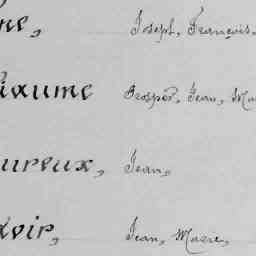 ne, Joseph, François,
ixume Prosper, Jean, Ma
ureux, Jean,
voir, Jean, Marie,